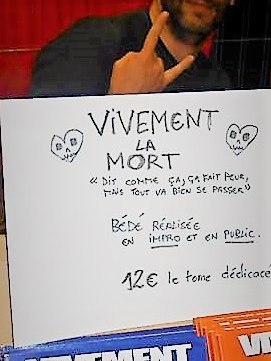 VIVEMENT
LA
MORT
« DIT COMME ÇA, ÇA FAIT PEUR,
MAIS TOUT VA BIEN SE PASSER »
BÉDÉ RÉALISÉE
EN IMPRO ET EN PUBLIC.
12€ le tome dédicacé
VIVEMENT
VI